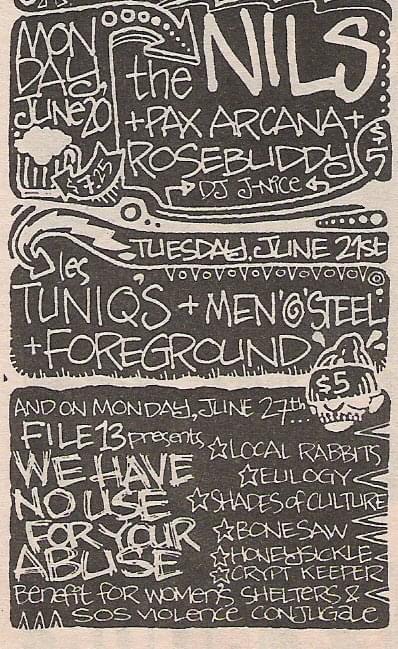 MON
DAY,
JUNE 20
the NILS
+PAX ARCANA+
ROSEBUDDY
$5
DJ J-NiCE
TUESDAY, JUNE 21st
les
TUNIQ'S + MEN 'O' STEEL
+FOREGROUND
$5
AND ON MONDAY, JUNE 27th...
FILE 13 presents
WE HAVE
NO USE
FOR YOUR
ABUSE
☆LOCAL RABBITS
☆EULOGY
☆SHADES of CULTURE
☆BONESAW
☆HONEYSUCKLE
☆CRYPT KEEPER
BENEFiT FOR WOMEN'S SHELTERS &
SOS ViOLENCE CONJUGALE